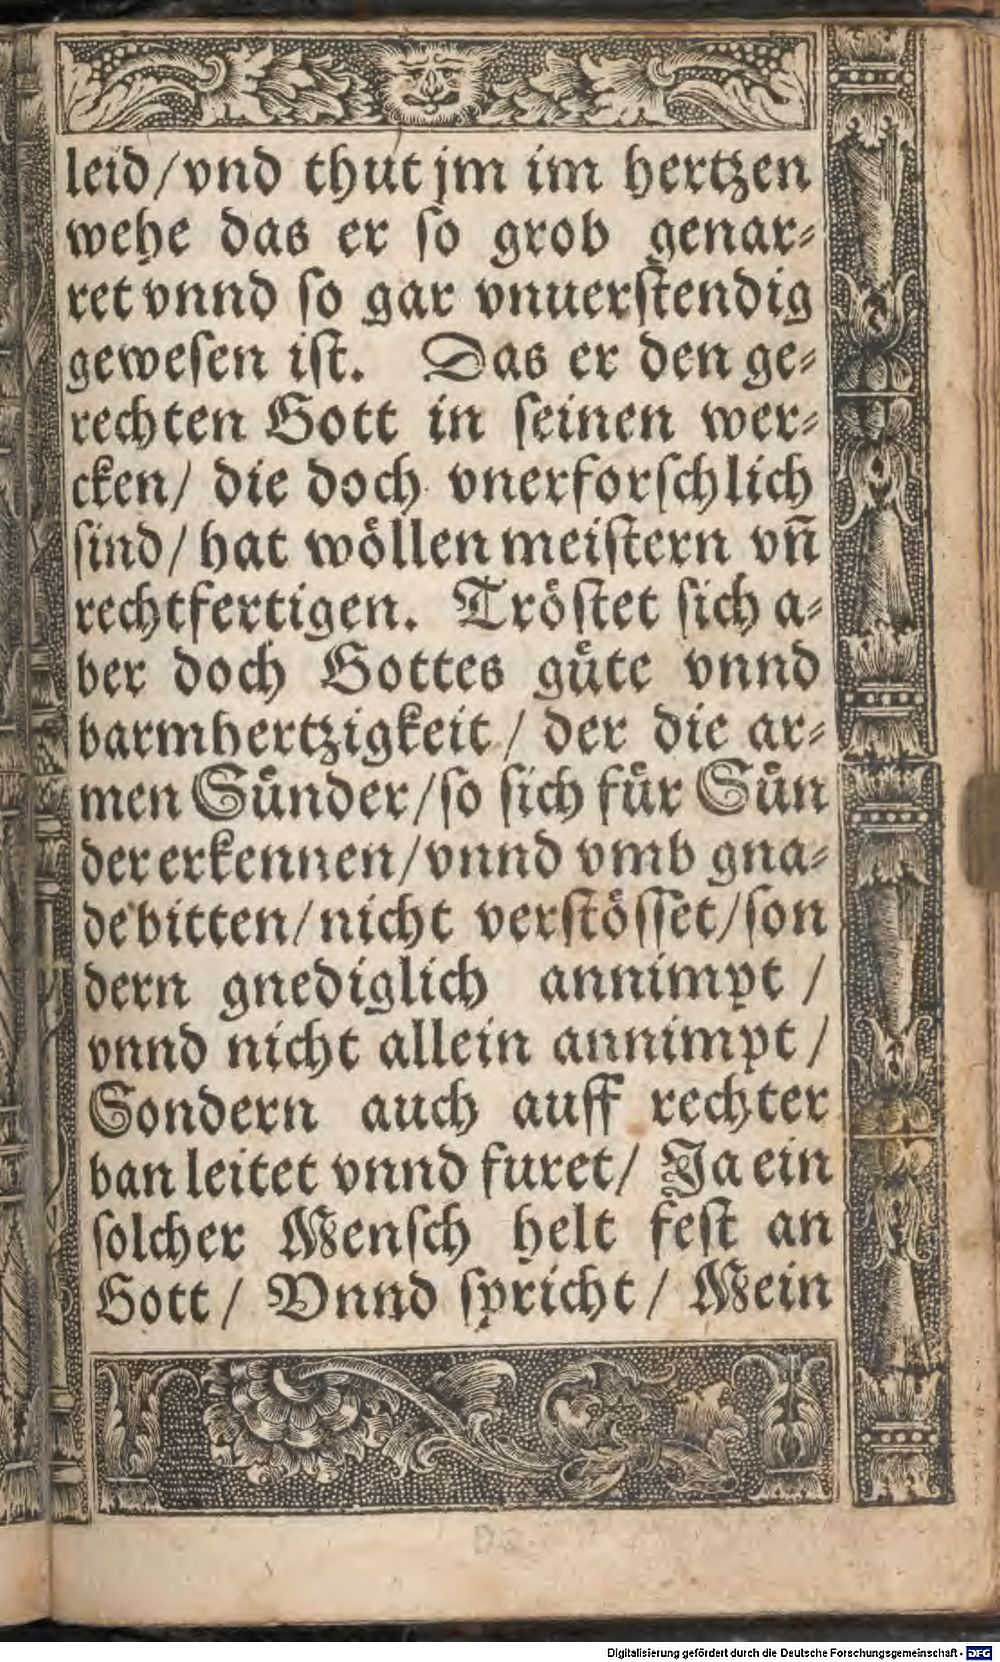 leid/vnd thut jm im hertzen
wehe das er so grob genar⸗
ret vnnd so gar vnuerstendig
gewesen ist. Das er den ge⸗
rechten Gott in seinen wer⸗
cken/ die doch vnerforschlich
sind/ hat wöllen meistern vn̄
rechtfertigen. Tröstet sich a⸗
ber doch Gottes güte vnnd
barmhertzigkeit/ der die ar⸗
men Sünder/so sich für Sün
der erkennen/vnnd vmb gna⸗
de bitten/nicht verstösset/son
dern gnediglich annimpt /
vnnd nicht allein annimpt/
Sondern auch auff rechter
ban leitet vnnd furet/ Ja ein
solcher Mensch helt fest an
Gott/ Vnnd spricht/ Mein
Digitalisierung gefördert durch die Deutsche Forschungsgemeinschaft - DFG